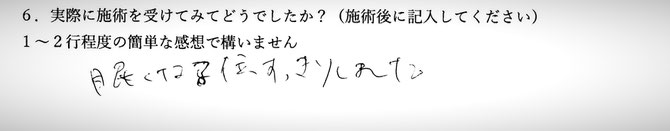 ６．実際に施術を受けてみてどうでしたか？（施術後に記入してください）
１～２行程度の簡単な感想で構いません
眠くなる位すっきりしました